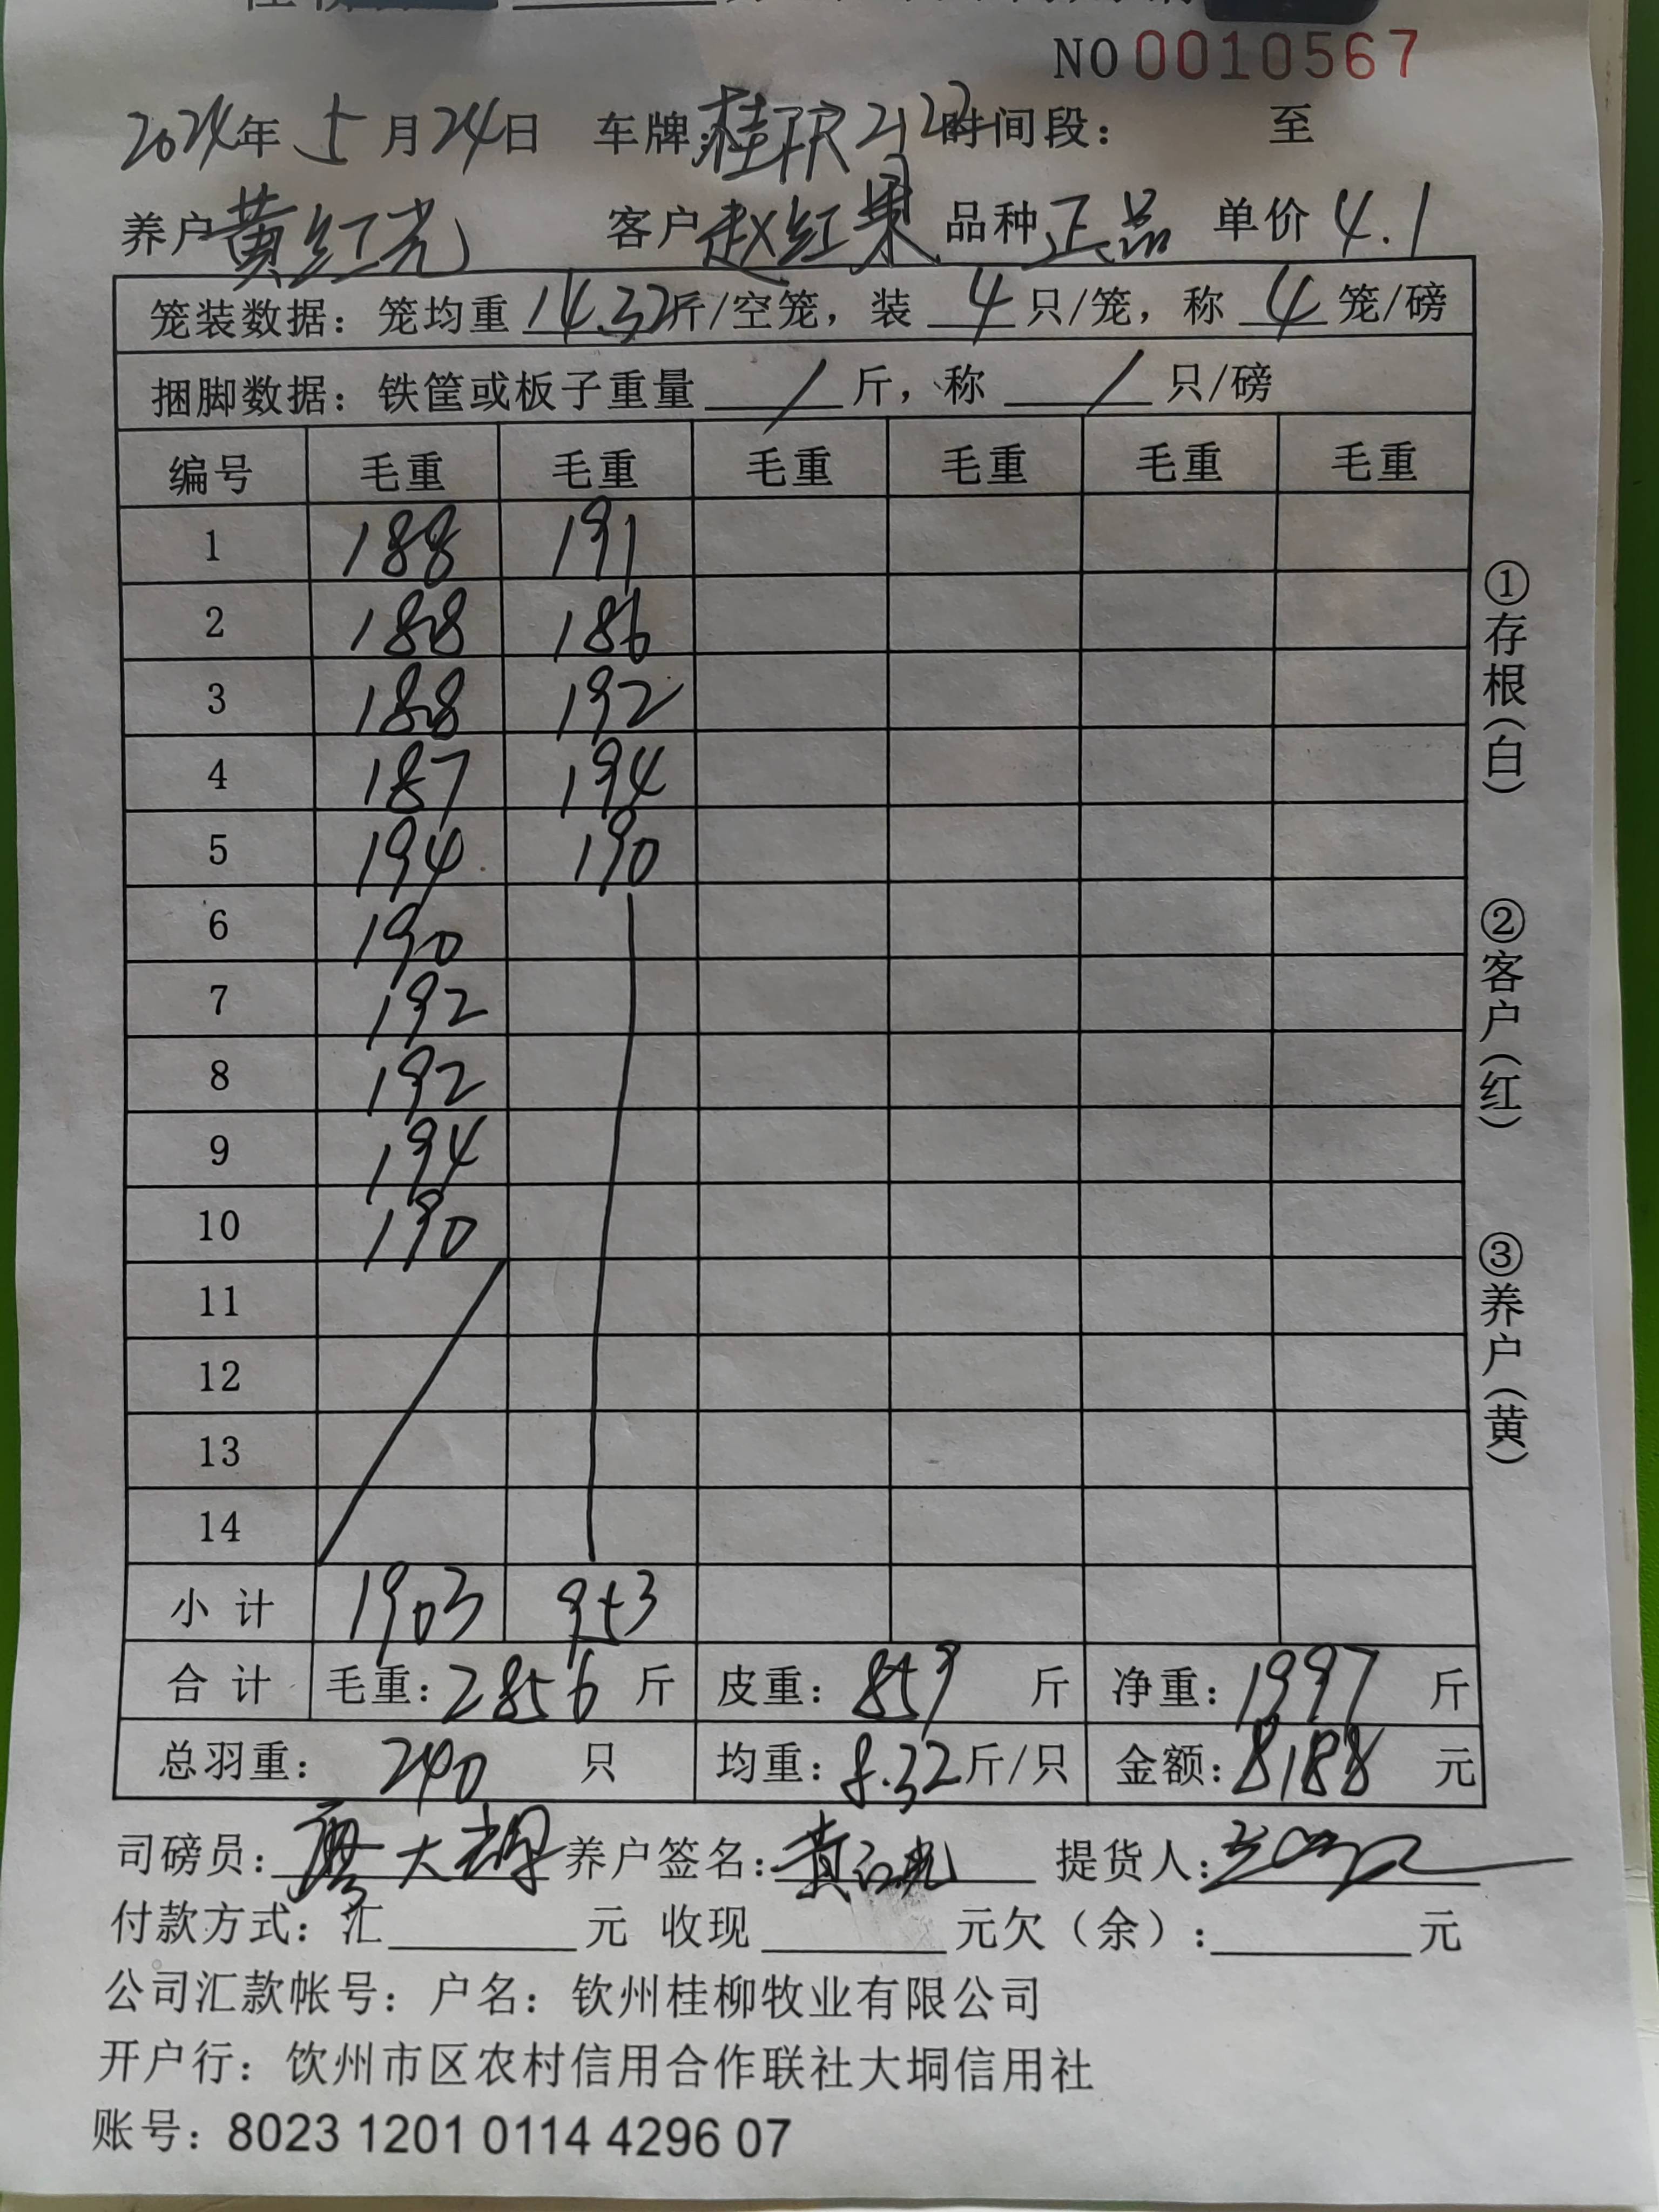 NO 0010567
2024年 5月24日 车牌: 时间段: 至
养户 黄红光 客户 赵红果 品种 正品 单价 4.1
笼装数据: 笼均重 14.32 斤/空笼, 装 4 只/笼, 称 4 笼/磅
捆脚数据: 铁筐或板子重量 / 斤, 称 / 只/磅
编号 毛重 毛重 毛重 毛重 毛重 毛重
1 188 191
2 188 186
3 188 192
4 187 194
5 194 190
6 190
7 192
8 192
9 194
10 190
11
12
13
14
小计 1903 953
合计 毛重: 2856 斤 皮重: 859 斤 净重: 1997 斤
总羽重: 240 只 均重: 8.32 斤/只 金额: 8188 元
司磅员: 廖大 养户签名: 黄红光 提货人:
付款方式: 汇 元 收现 元欠(余): 元
公司汇款帐号: 户名: 钦州桂柳牧业有限公司
开户行: 饮州市区农村信用合作联社大垌信用社
账号: 8023 1201 0114 4296 07
①存根(白)
②客户(红)
③养户(黄)